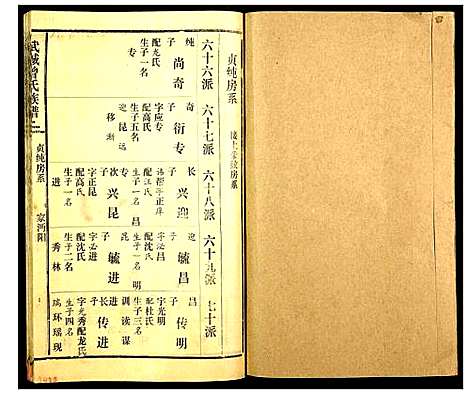 贞纯房系
六十六派 六十七派 六十八派 六十九派 七十派
纯子 尚奇
配龙氏
生子一名
专
奇子 衍专
字应专
配高氏
生子五名
迎昆远
移渐
长子 兴迎
配江氏
生子一名
昌
次子 兴昆
字正昆
配高氏
生子一名
进
迎子 毓昌
字必昌
配沈氏
生子一名
明
昆子 毓进
字必进
配沈氏
生子二名
秀林
昌子 传明
字光明
配杜氏
生子三名
训读谋
进长子 传进
字光秀配龙氏
生子四名
瑞环瑶现
武城曾氏族谱
贞纯房系
家沔阳